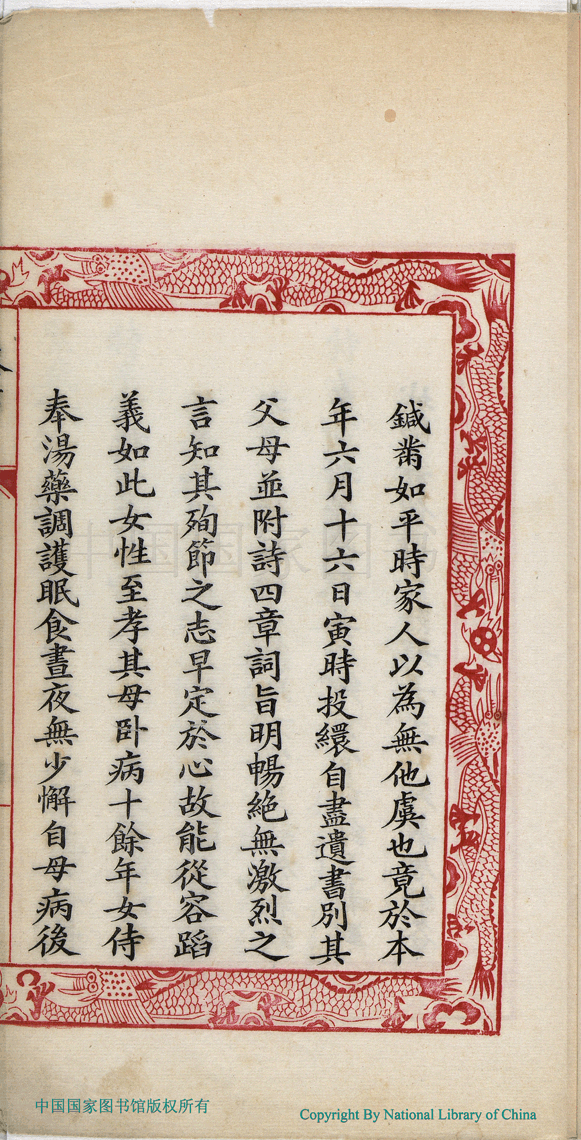 鍼黹如平時家人以為無他虞也竟於本
年六月十六日寅時投繯自盡遺書別其
父母並附詩四章詞旨明暢絶無激烈之
言知其殉節之志早定於心故能從容蹈
義如此女性至孝其母卧病十餘年女侍
奉湯藥調護眠食晝夜無少懈自母病後
中国国家图书
中国国家图书馆版权所有
Copyright By National Library of China